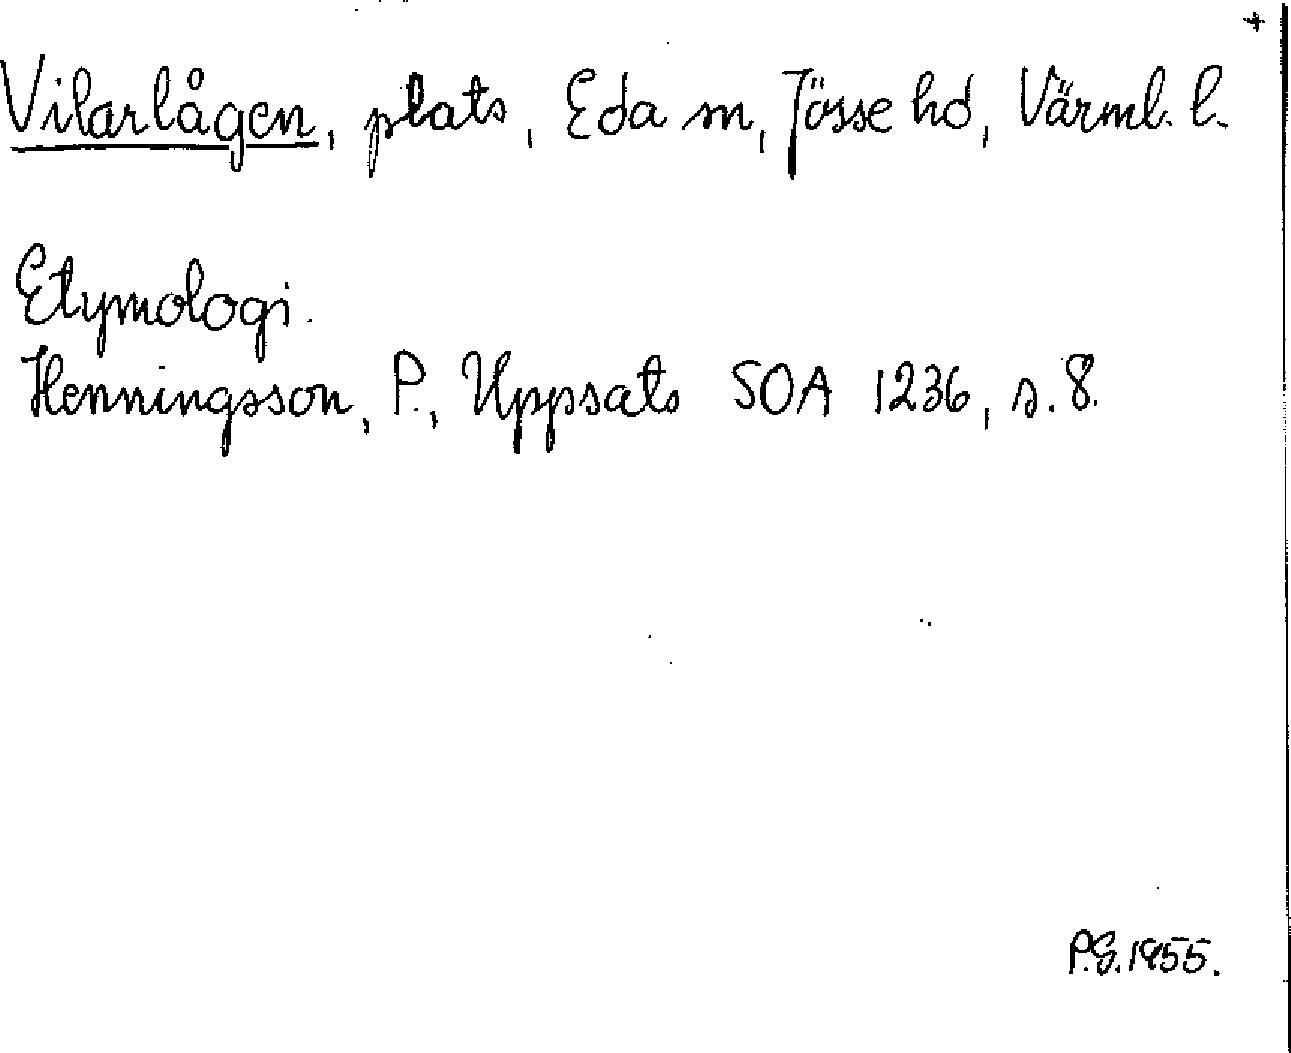 +
Vilarlågen, plats, Eda sn, Jösse hd, Värml. l.
Etymologi.
Henningsson, P., Uppsats SOA 1236, s. 8.
P.G. 1955.